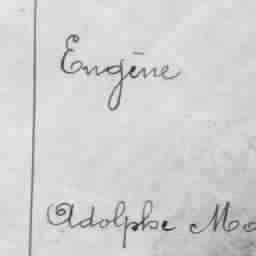 Eugène
Adolphe